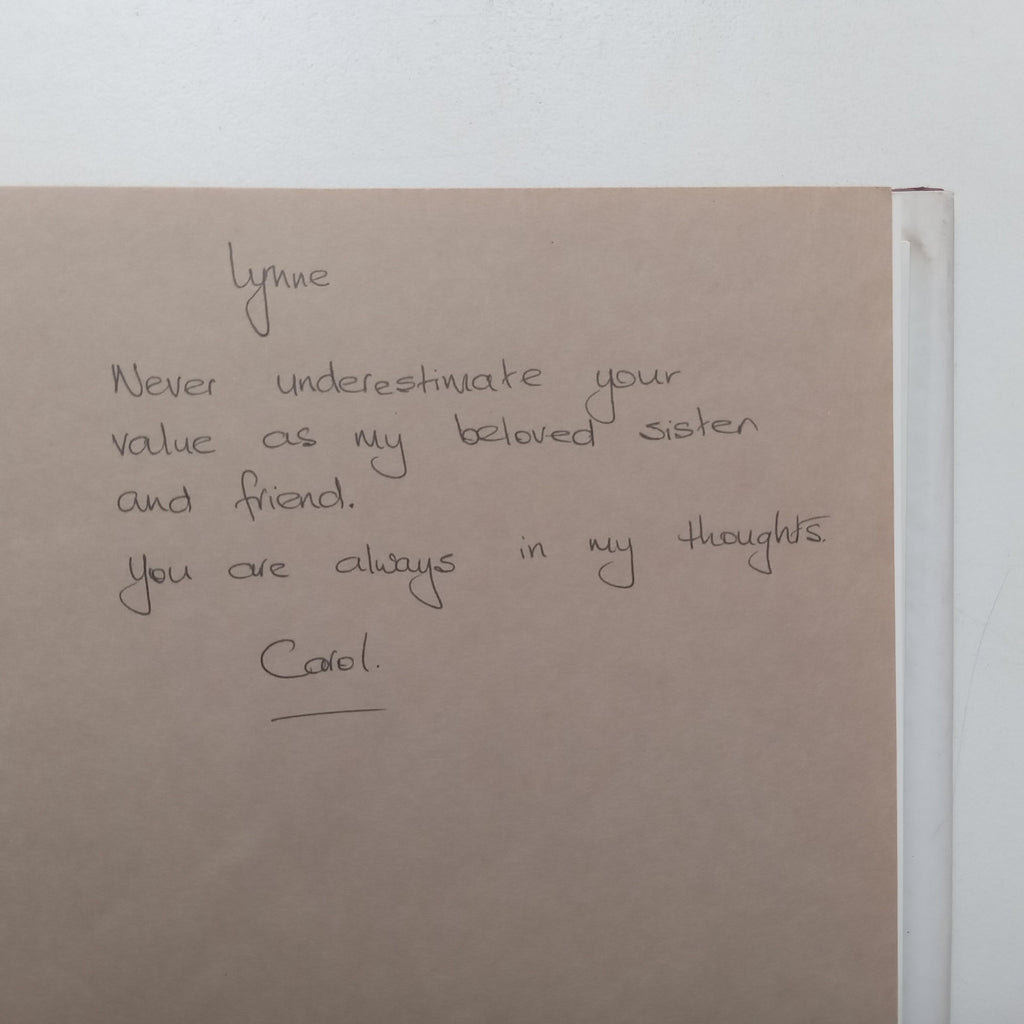 Lynne
Never underestimate your
value as my beloved sister
and friend.
You are always in my thoughts.
Carol.